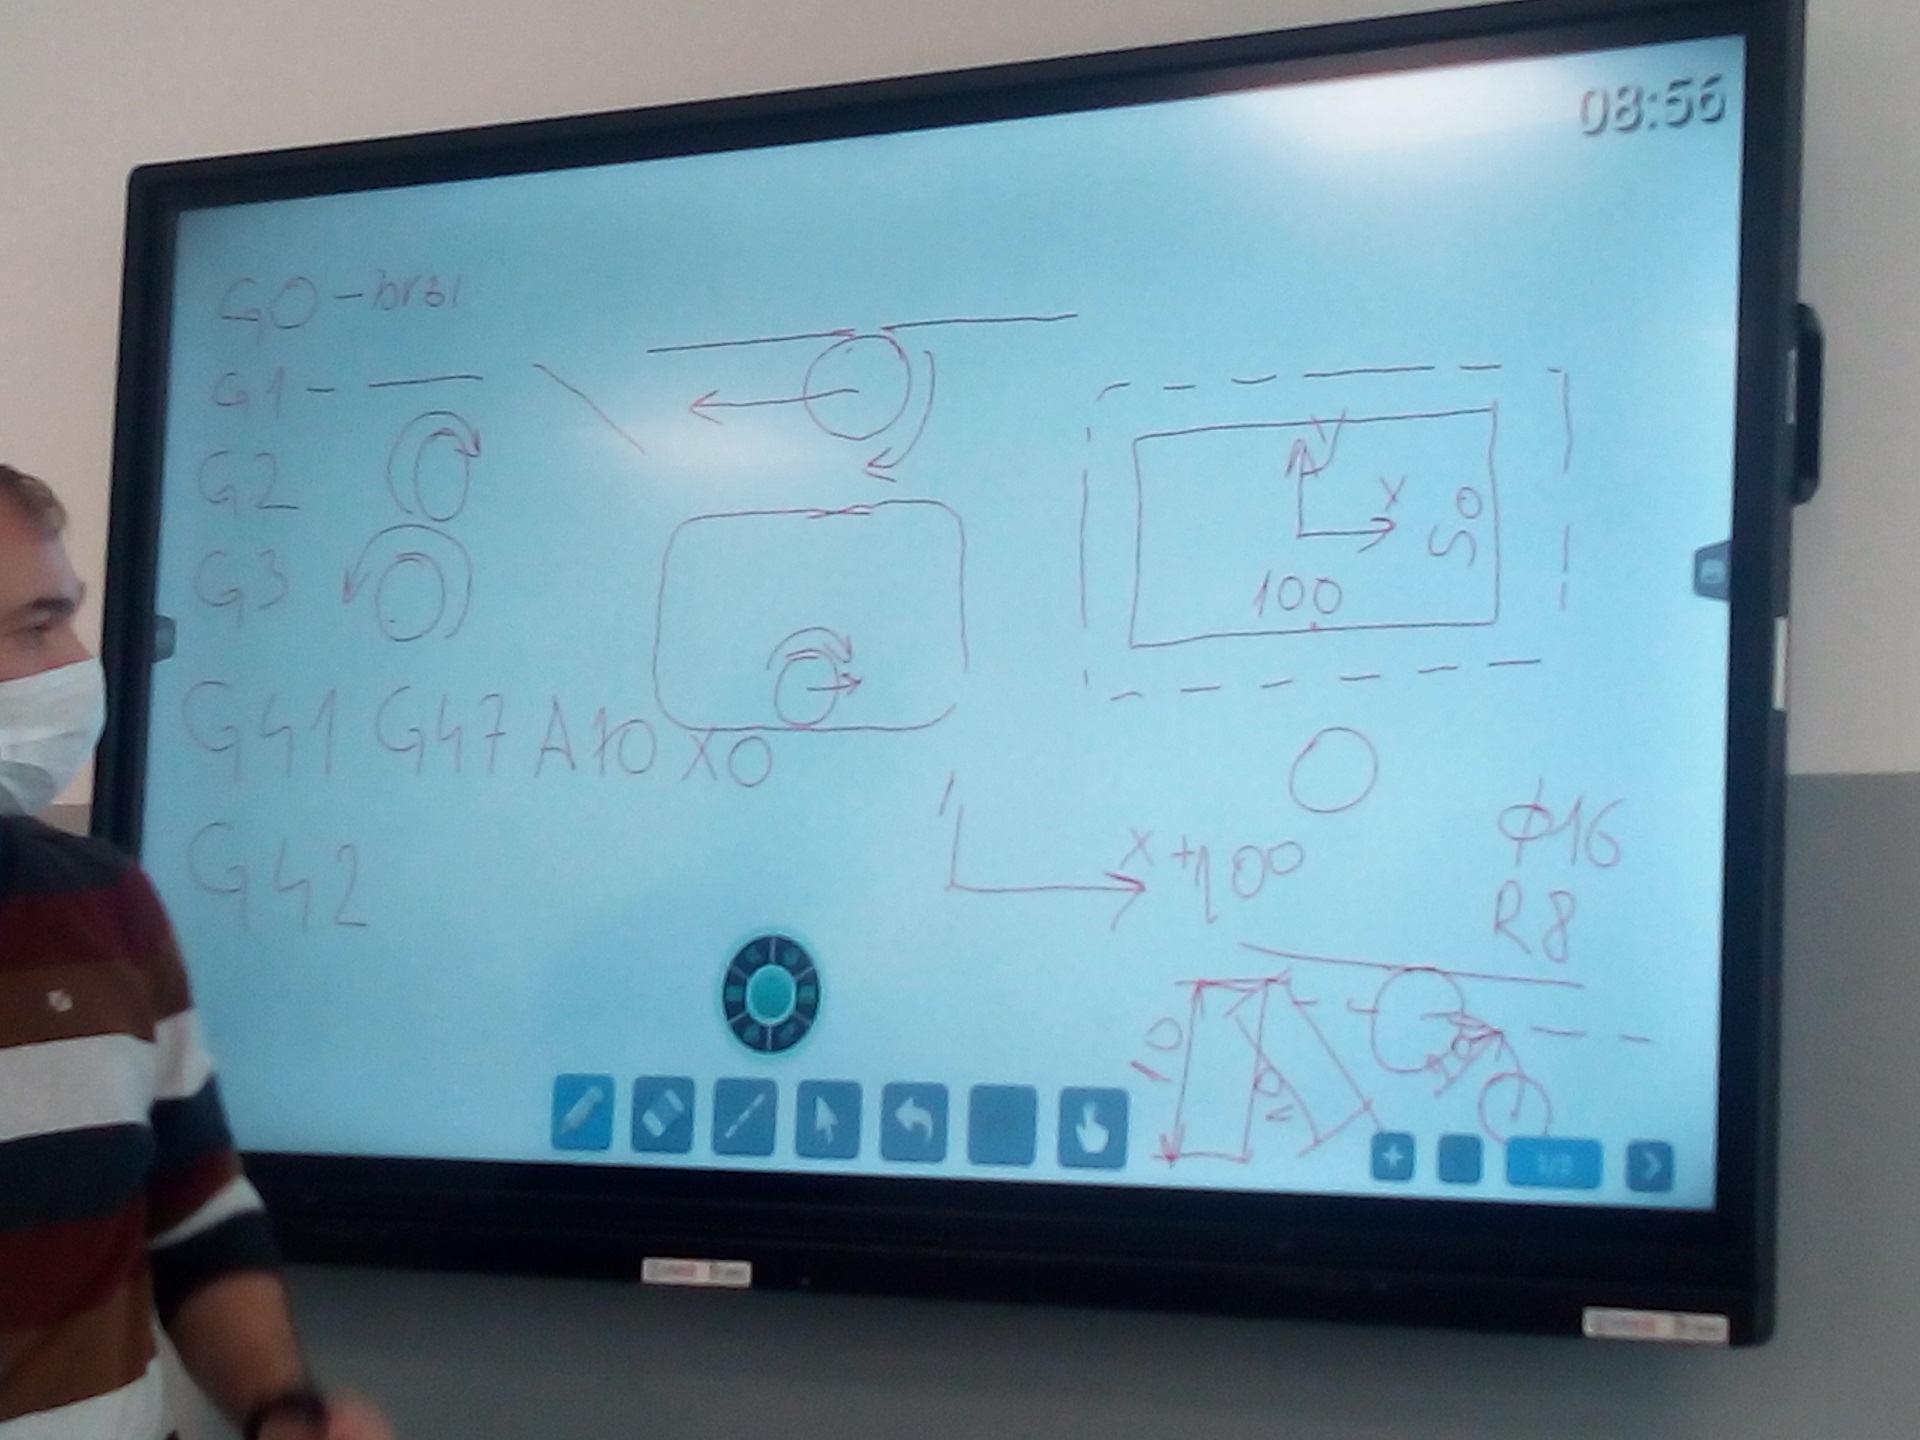 08:56
G0 - brzi
G1 -
G2
G3
G41 G47 A10 X0
G42
Y
X
50
100
X +100
φ16
R8
10